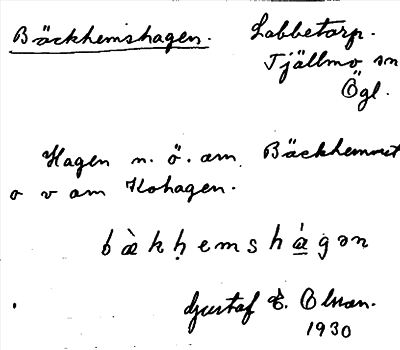 Bäckhemshagen. Labbetorp.
Tjällmo sn
Ögl.
Hagen n. ö. om Bäckhemmet
o v om Kohagen.
bàkḥemshá̱gən
Gustaf E. Olsson.
1930